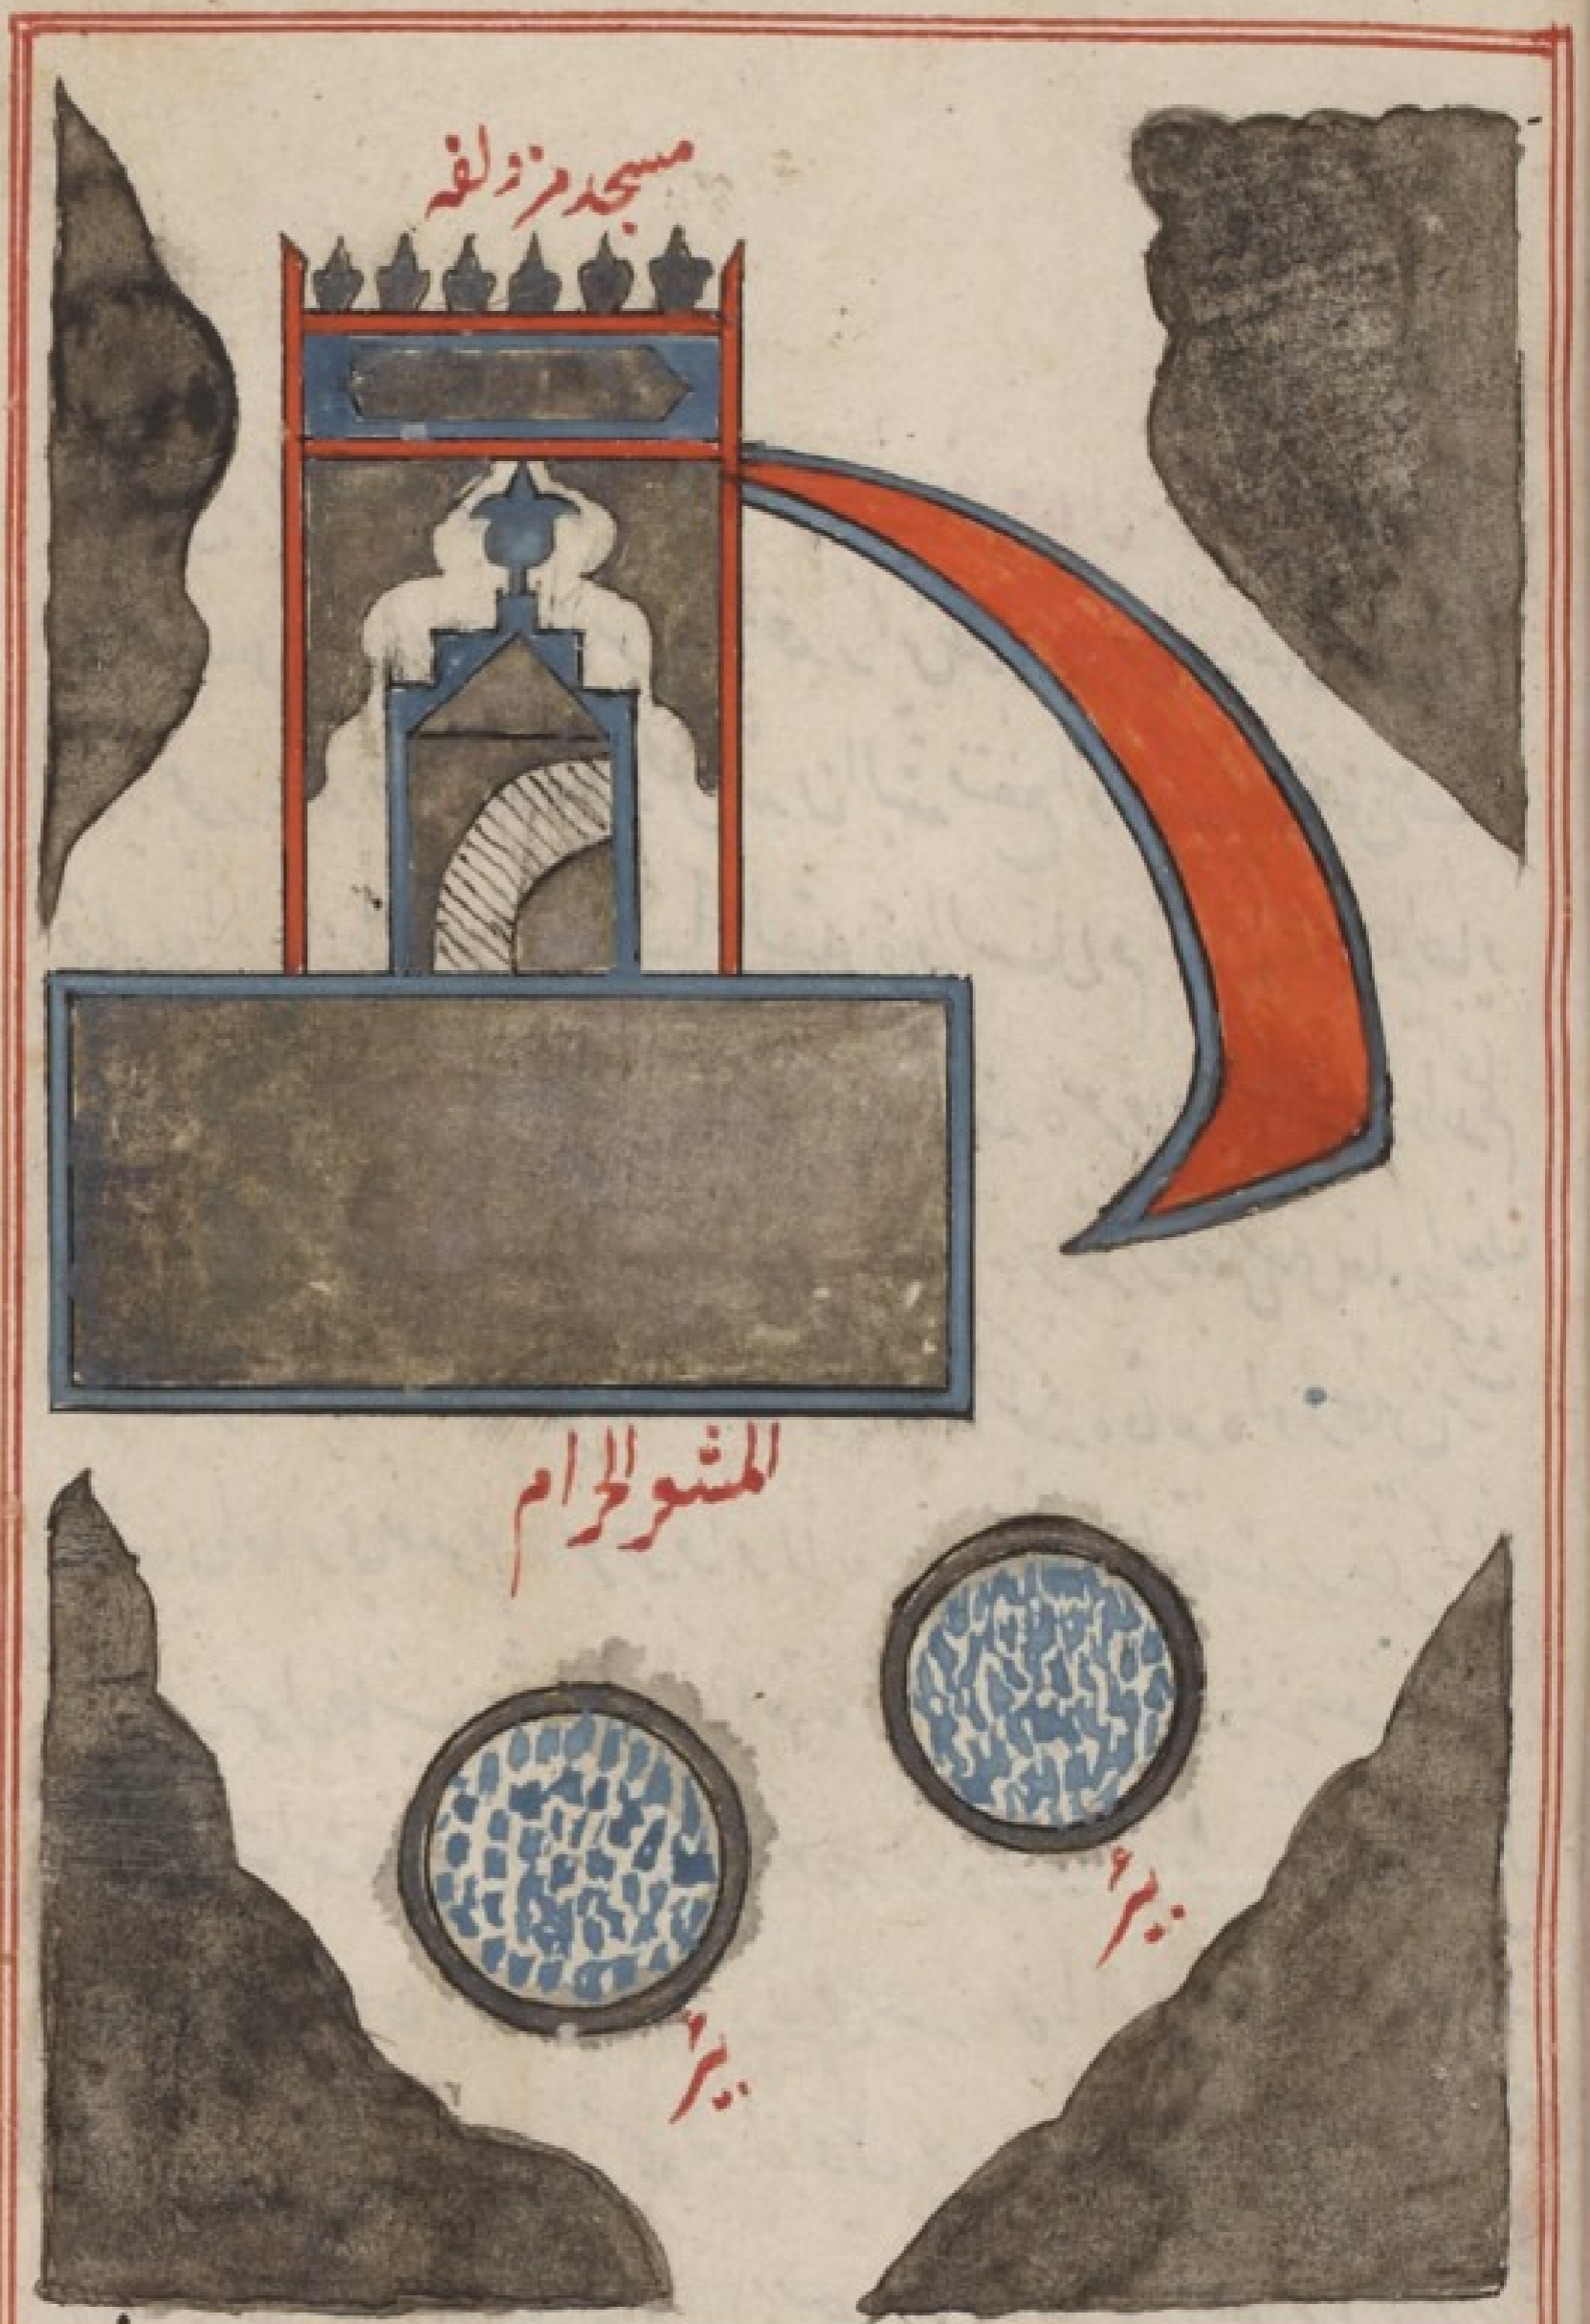 مسجد مزدلفه
المشعر الحرام
بئر
بئر